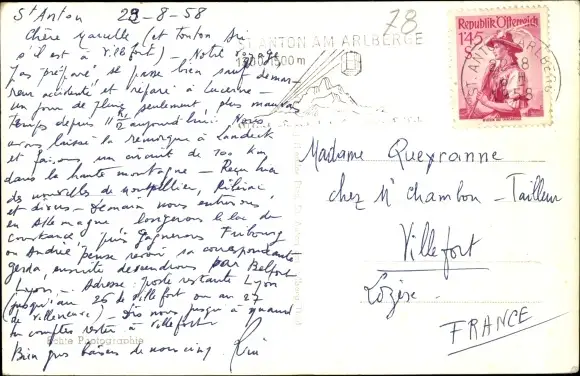 St Anton 23-8-58
78
Chère Marcelle (et Tonton
s'il est à Villefort) - Notre voyage
pas préparé se passe bien sauf demar-
reur accidenté et réparé à Lucerne -
un jour de pluie seulement, plus mauvais
temps depuis 11 h 1/2 aujourd'hui. Nous
avons laissé la remorque à Landeck
et faisons un circuit de 200 km
dans la haute montagne - Reçu hier
des nouvelles de Montpellier,
et - Demain nous entrerons
en Allemagne longerons le lac de
Constance, puis gagnerons Fribourg
où André pense revoir sa correspondante
Gerda, ensuite descendrons par Belfort
Lyon - Adresse: poste restante Lyon
(jusqu'au 26 de Villefort ou au 27
de Villeneuve) - Dis nous jusqu'à quand
tu comptes rester à Villefort
Bien gros baisers de nous cinq
Echte Photographie
ST. ANTON AM ARLBERG
1300-1500m
Republik Österreich
1·45
Madame Queyranne
chez Mr Chambon - Tailleur
Villefort
Lozère
FRANCE